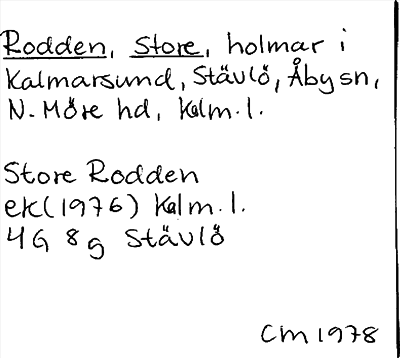 Rodden, Store, holmar i
Kalmarsund, Stävlö, Åby sn,
N. Möre hd, Kalm. l.
Store Rodden
ek (1976) Kalm. l.
4G 8g Stävlö
CM 1978